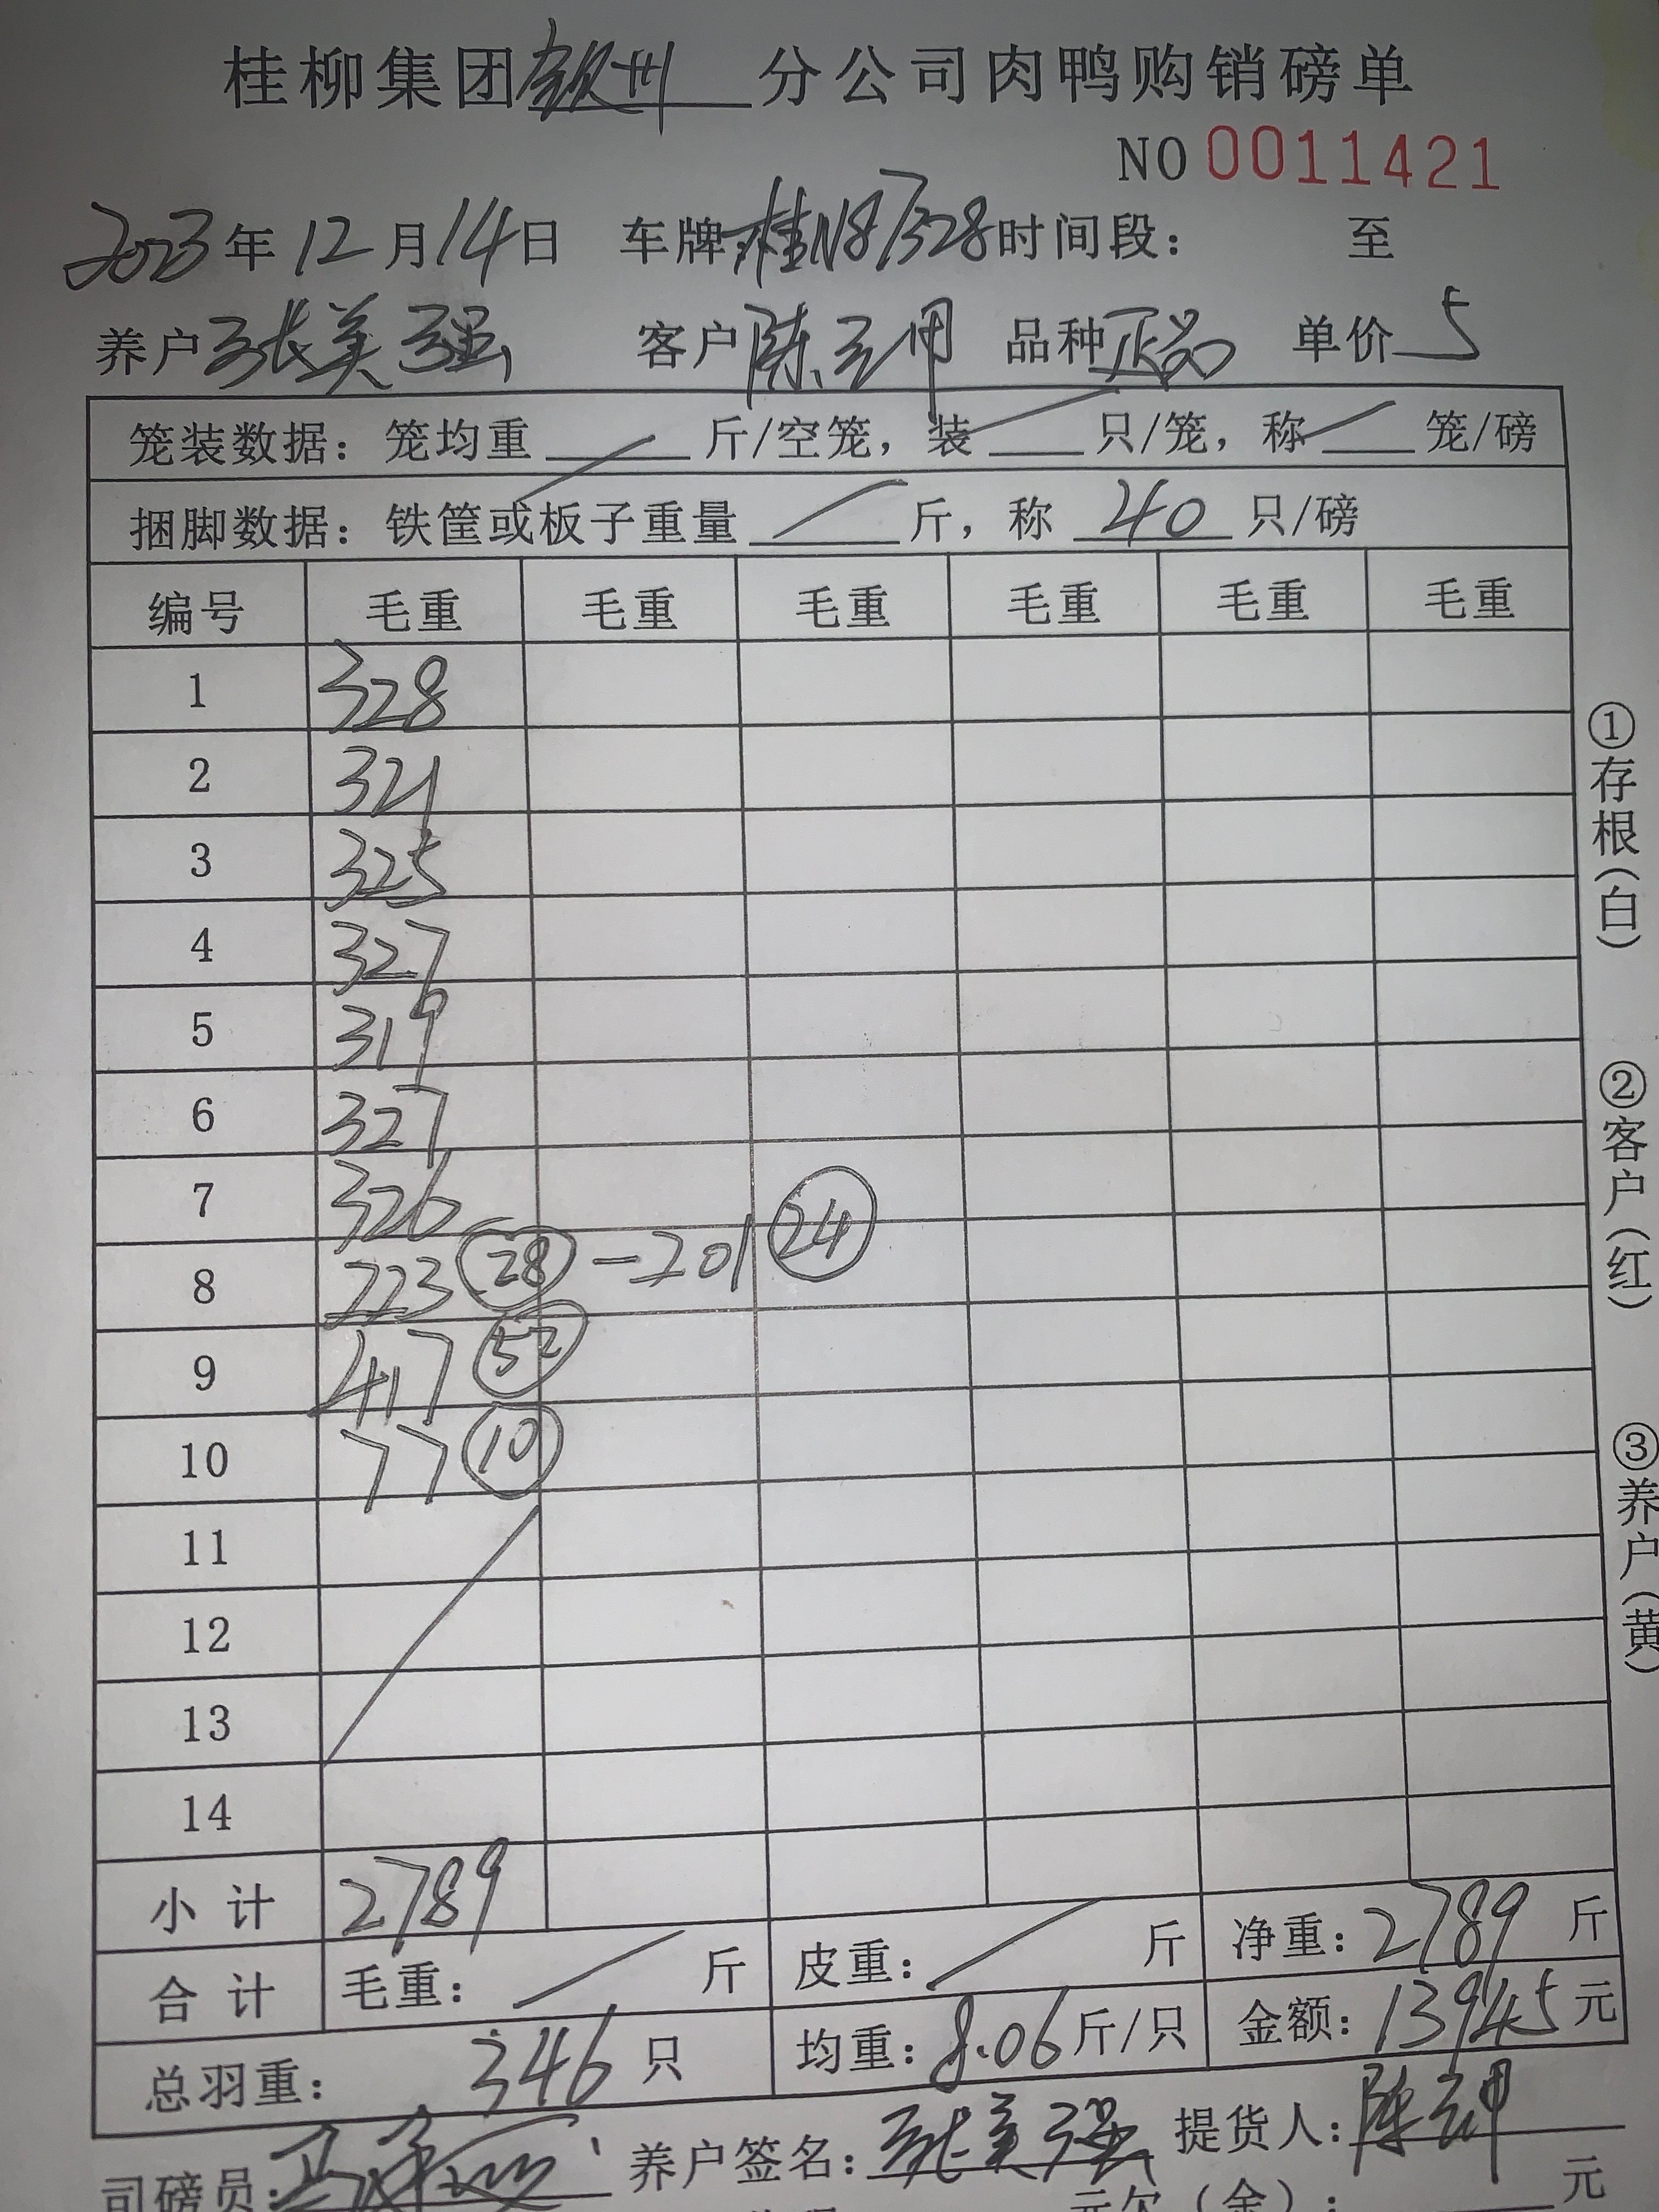 桂柳集团钦州分公司肉鸭购销磅单
NO 0011421
2023年12月14日 车牌桂N87328时间段: 至
养户张美强 客户陈云明 品种正品 单价5
笼装数据: 笼均重 斤/空笼, 装 只/笼, 称 笼/磅
捆脚数据: 铁筐或板子重量 斤, 称 40 只/磅
编号 毛重 毛重 毛重 毛重 毛重 毛重
1 328
2 321
3 325
4 327
5 319
6 327
7 326
8 223 28 -201 24
9 417 52
10 77 10
11
12
13
14
小计 2789
合计 毛重: 斤 皮重: 斤 净重: 2789 斤
总羽重: 346 只 均重: 8.06 斤/只 金额: 13945 元
司磅员: 养户签名: 张美强 提货人: 陈云
元欠(金): 元
①存根(白)
②客户(红)
③养户(黄)